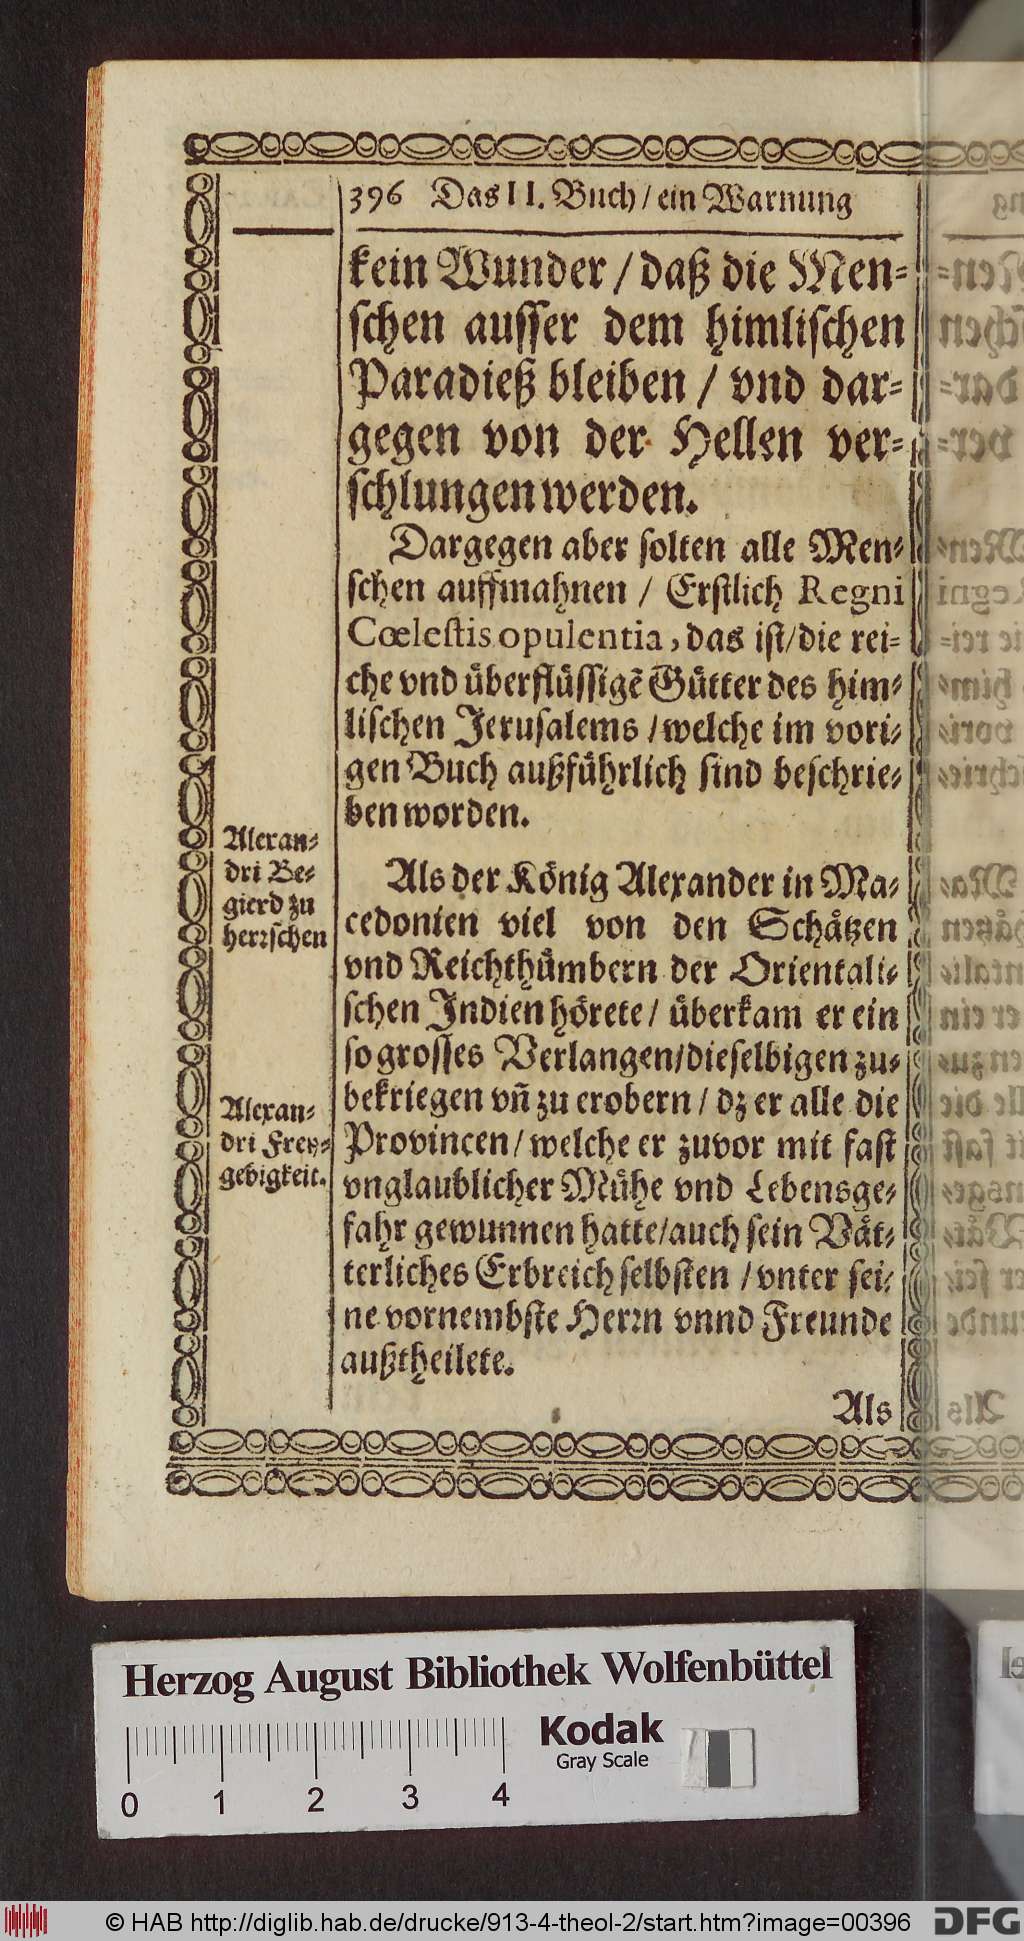 396 Das II. Buch / ein Warnung
kein Wunder / daß die Men⸗
schen ausser dem himlischen
Paradieß bleiben / vnd dar⸗
gegen von der Hellen ver⸗
schlungen werden.
Dargegen aber solten alle Men⸗
schen auffmahnen / Erstlich Regni
Cœlestis opulentia, das ist / die rei⸗
che vnd uͤberfluͤssigẽ Guͤtter des him⸗
lischen Jerusalems / welche im vori⸗
gen Buch außfuͤhrlich sind beschrie⸗
ben worden.
Alexan⸗
dri Be⸗
gierd zu
herꝛschen
Als der Koͤnig Alexander in Ma⸗
cedonien viel von den Schaͤtzen
vnd Reichthuͤmbern der Orientali⸗
schen Indien hoͤrete / uͤberkam er ein
so grosses Verlangen / dieselbigen zu⸗
bekriegen vñ zu erobern / dz er alle die
Alexan⸗
dri Frey⸗
gebigkeit.
Provincen / welche er zuvor mit fast
vnglaublicher Muͤhe vnd Lebensge⸗
fahr gewunnen hatte / auch sein Vaͤt⸗
terliches Erbreich selbsten / vnter sei⸗
ne vornembste Herꝛn vnnd Freunde
außtheilete.
Als
Herzog August Bibliothek Wolfenbüttel
Kodak
Gray Scale
0 1 2 3 4
© HAB http://diglib.hab.de/drucke/913-4-theol-2/start.htm?image=00396
DFG